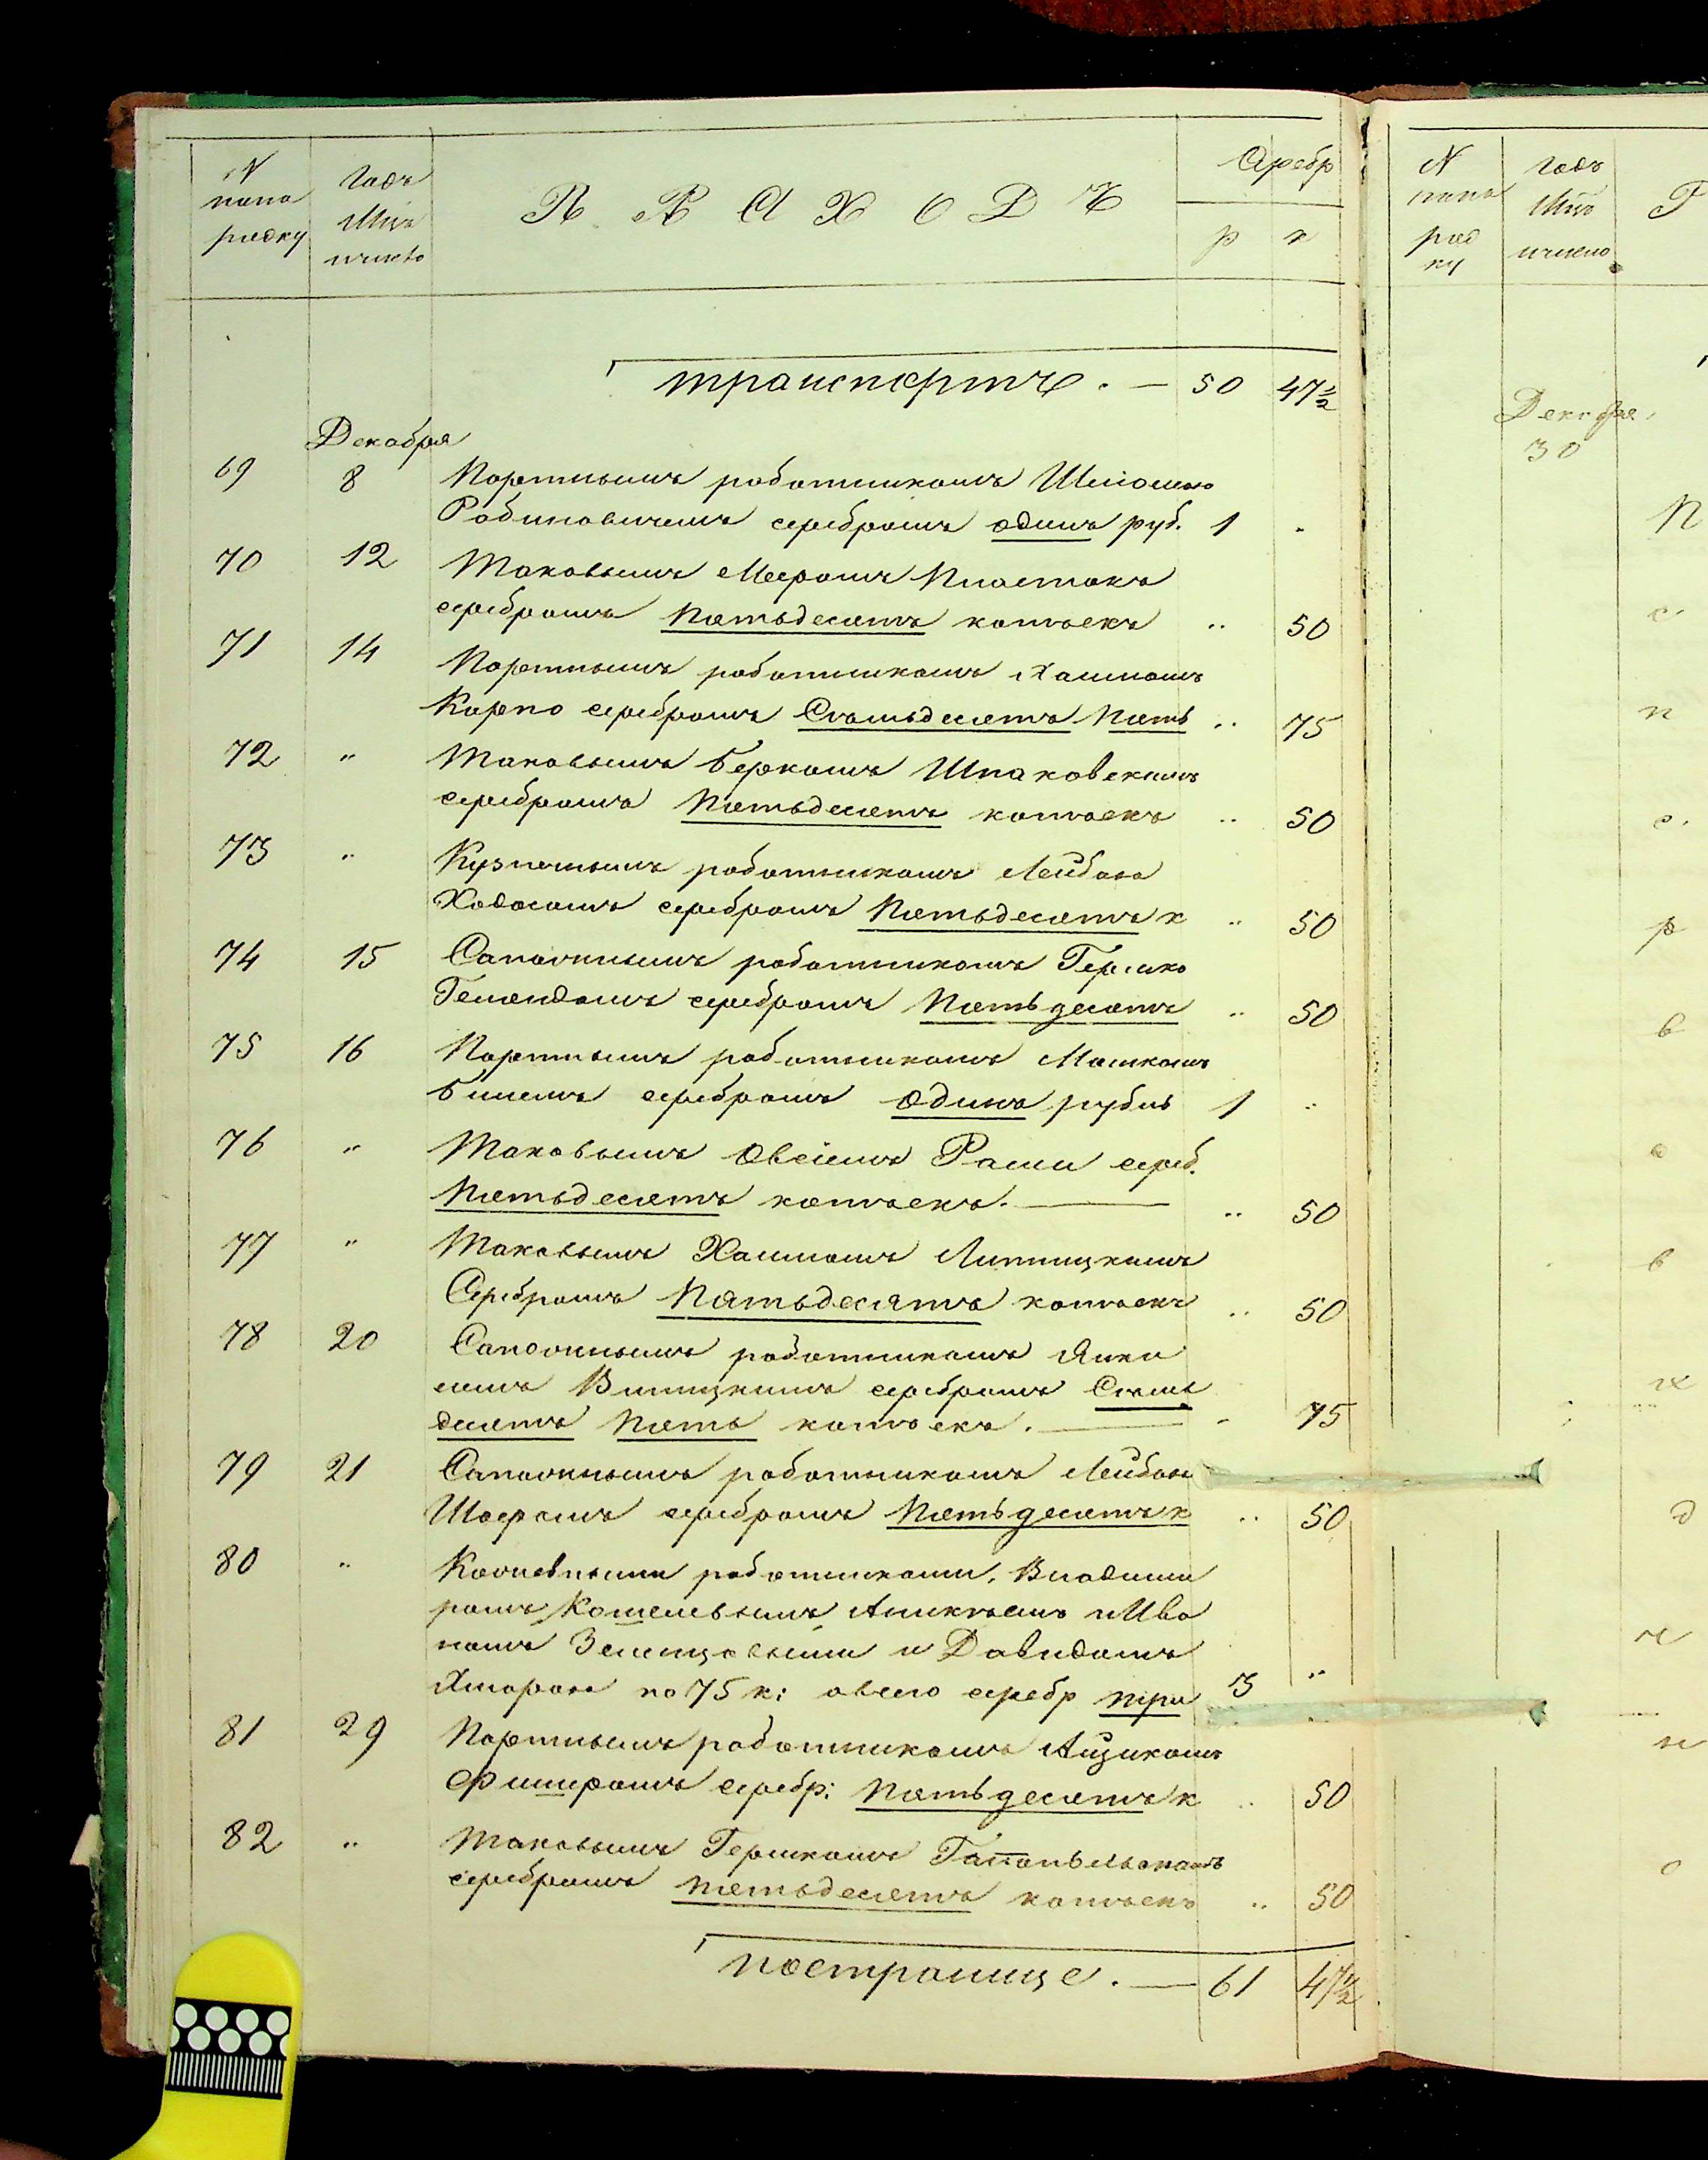 N попо рядку
Годъ Мцъ и число
П Р И Х О Д Ъ
Серебр
р к
транспортъ. — 50 47½
Декабря
69 8 Портнымъ работникомъ Шлиомою
Рабиновичемъ серебромъ одинъ руб. 1 "
70 12 Таковымъ Мееромъ Пластокъ
серебромъ пятьдесятъ копѣекъ " 50
71 14 Портнымъ работникомъ Хаимомъ
Карпо серебромъ Семьдесятъ пять " 75
72 " Таковымъ Беркомъ Шпаковскимъ
серебромъ пятьдесятъ копѣекъ " 50
73 " Кузнечнымъ работникомъ Лейбою
Ходасомъ серебромъ пятьдесятъ к " 50
74 15 Сапожнымъ работникомъ Гершко
серебромъ пятьдесятъ " 50
75 16 Портнымъ работникомъ Мошкомъ
серебромъ одинъ рубль 1 "
76 " Таковымъ Овсіемъ сереб.
Пятьдесятъ копѣекъ. — " 50
77 " Таковымъ Хаимомъ Липницкимъ
Серебромъ Пятьдесятъ копѣекъ " 50
78 20 Сапожнымъ работникомъ Янке
лемъ Винницкимъ серебромъ Семь
десятъ пять копѣекъ. — " 75
79 21 Сапожнымъ работникомъ Лейбою
серебромъ Пятьдесятъ к " 50
80 " Кожевными работниками, Владими
ромъ Кошелевымъ, Аникѣемъ и Ива
номъ и Давидомъ
по 75 к: овсего серебр три 3 "
81 29 Портнымъ работникомъ Айзикомъ
Фишеромъ серебр: пятьдесятъ к " 50
82 " Таковымъ Гершкомъ
серебромъ пятьдесятъ копѣекъ " 50
пострани­це. — 61 47½
N попо ряд ку
Годъ Мцъ и число
Декабря
30